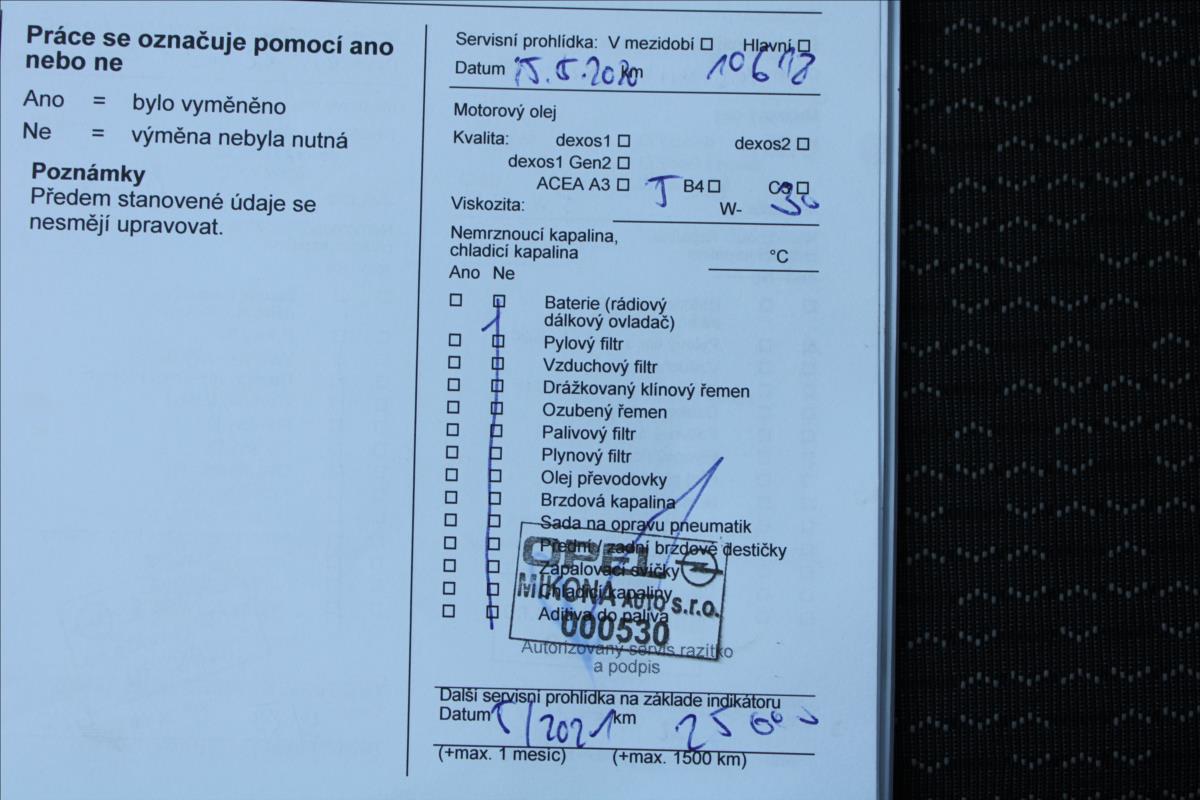 Práce se označuje pomocí ano
nebo ne
Ano = bylo vyměněno
Ne = výměna nebyla nutná
Poznámky
Předem stanovené údaje se
nesmějí upravovat.
Servisní prohlídka: V mezidobí □ Hlavní □
Datum 15.5.2020 km 10618
Motorový olej
Kvalita: dexos1 □ dexos2 □
dexos1 Gen2 □
ACEA A3 □ B4 □ C3 □
Viskozita: 5 W- 30
Nemrznoucí kapalina,
chladicí kapalina °C
Ano Ne
□ □ Baterie (rádiový
dálkový ovladač)
□ □ Pylový filtr
□ □ Vzduchový filtr
□ □ Drážkovaný klínový řemen
□ □ Ozubený řemen
□ □ Palivový filtr
□ □ Plynový filtr
□ □ Olej převodovky
□ □ Brzdová kapalina
□ □ Sada na opravu pneumatik
□ □ Přední / zadní brzdové destičky
□ □ Zapalovací svíčky
□ □ Chladicí kapaliny
□ □ Aditiva do paliva
OPEL
MIKONA AUTO s.r.o.
000530
Autorizovaný servis razítko
a podpis
Další servisní prohlídka na základe indikátoru
Datum 5/2021 km 25000
(+max. 1 mesic) (+max. 1500 km)